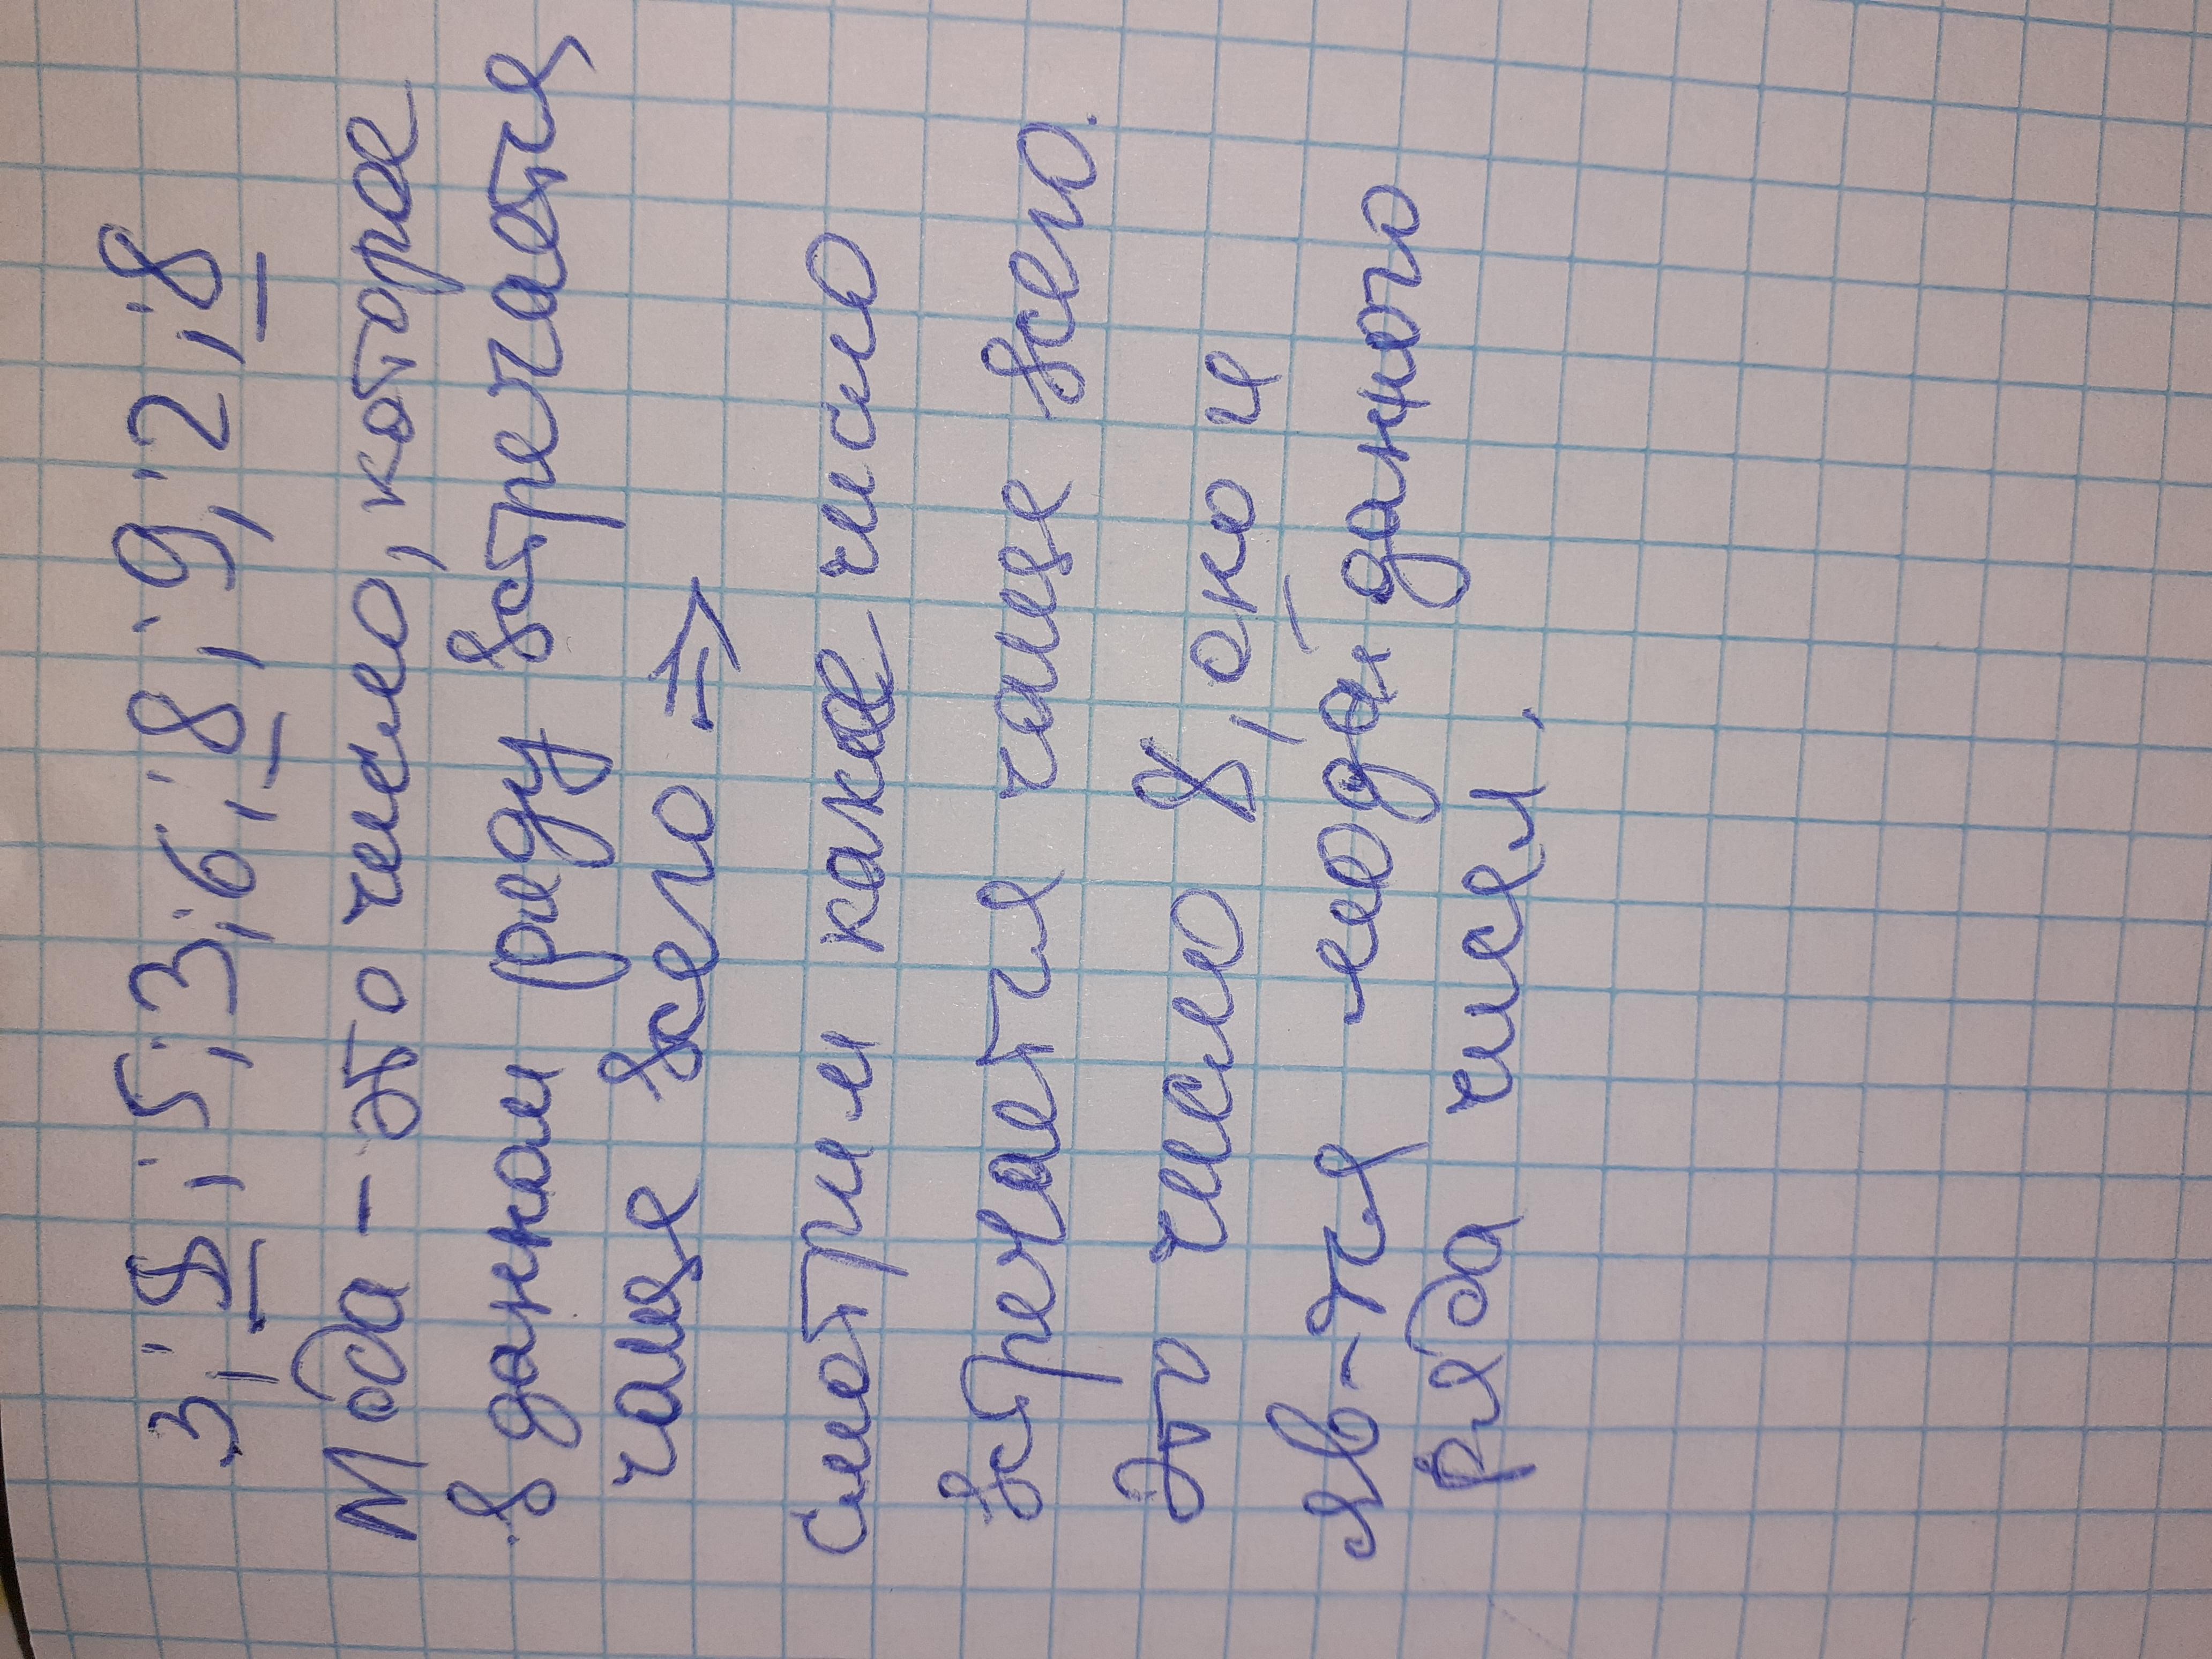 3; 8; 5; 3; 6; 8; 9; 2; 8
Мода - это число, которое
в данном ряду встречается
чаще всего =>
Смотрим какое число
встречается чаще всего.
Это число 8, оно и
яв-тся модой данного
ряда чисел.